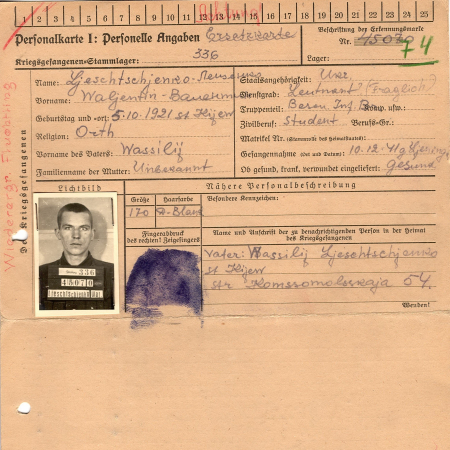 1 2 3 4 5 6 7 8 9 10 11 12 13 14 15 16 17 18 19 20 21 22 23 24 25
Personalkarte I: Personelle Angaben Ersatzkarte
Kriegsgefangenen-Stammlager: 336
Beschriftung der Erkennungsmarke
Nr. 45070
74
Lager:
Des Kriegsgefangenen
Name: Ljeschtschjenko-
Vorname: Waljentin-
Geburtstag und -ort: 5.10.1921 st Kijew
Religion: Orth
Vorname des Vaters: Wassilij
Familienname der Mutter: Unbekannt
Staatsangehörigkeit: Ukr.
Dienstgrad: Leutnant (Fraglich)
Truppenteil: Inf. Komp. usw.:
Zivilberuf: Student Berufs-Gr.:
Matrikel Nr. (Stammrolle des Heimatstaates):
Gefangennahme (Ort und Datum): 10.12.41
Ob gesund, krank, verwundet eingeliefert: Gesund
Lichtbild
Nähere Personalbeschreibung
Größe
Haarfarbe
Besondere Kennzeichen:
170
D-Blond
Fingerabdruck
des rechten! Zeigefingers
Name und Anschrift der zu benachrichtigenden Person in der Heimat
des Kriegsgefangenen
Vater: Wassilij Ljeschtschjenko
st Kijew
str Komssomolsskaja 54.
Wenden!
336
45070